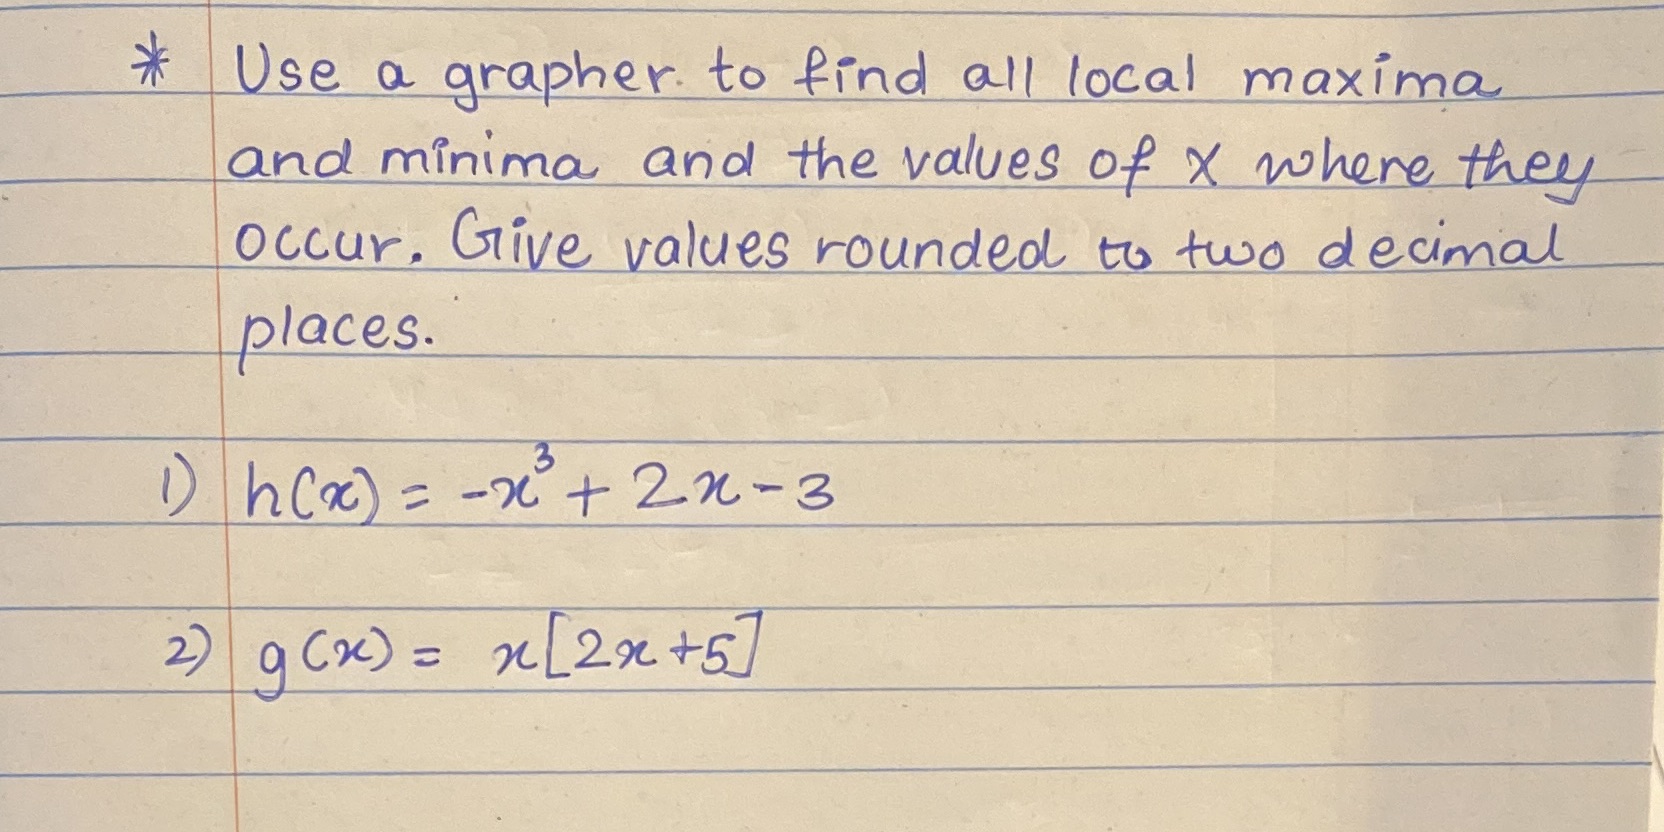 * Use a grapher to find all local maxima
and minima and the values of x where they
occur. Give values rounded to two decimal
places.
1) h(x) = -x³ + 2x - 3
2) g(x) = x[2x+5]